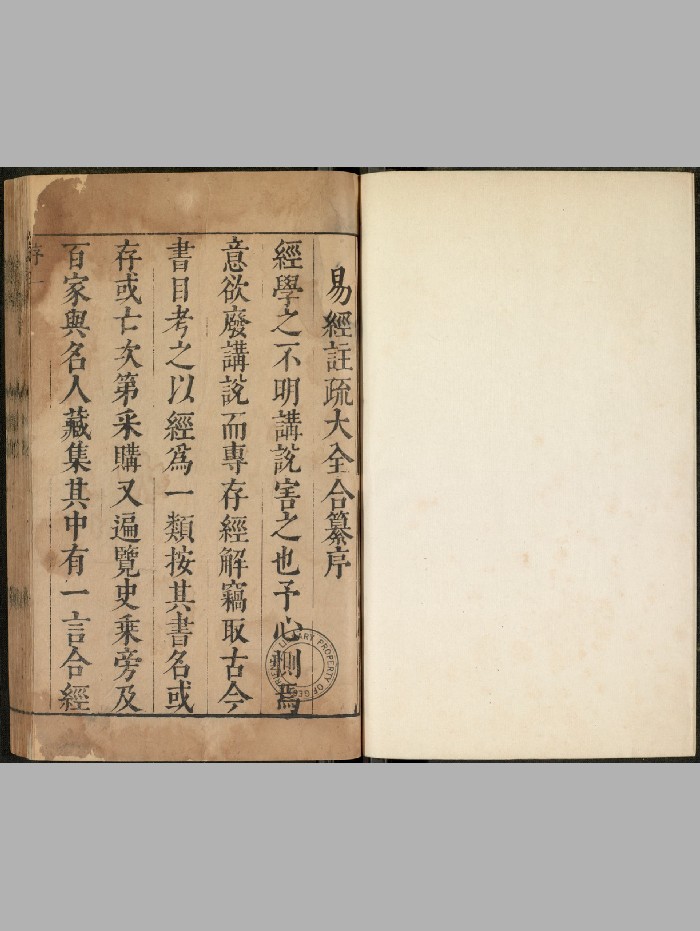 易經註疏大全合纂序
經學之不明講說害之也予心惻焉
意欲廢講說而專存經解竊取古今
書目考之以經爲一類按其書名或
存或亡次第采購又遍覽史乘旁及
百家與名人藏集其中有一言合經
序 一
LIBRARY PROPERTY OF